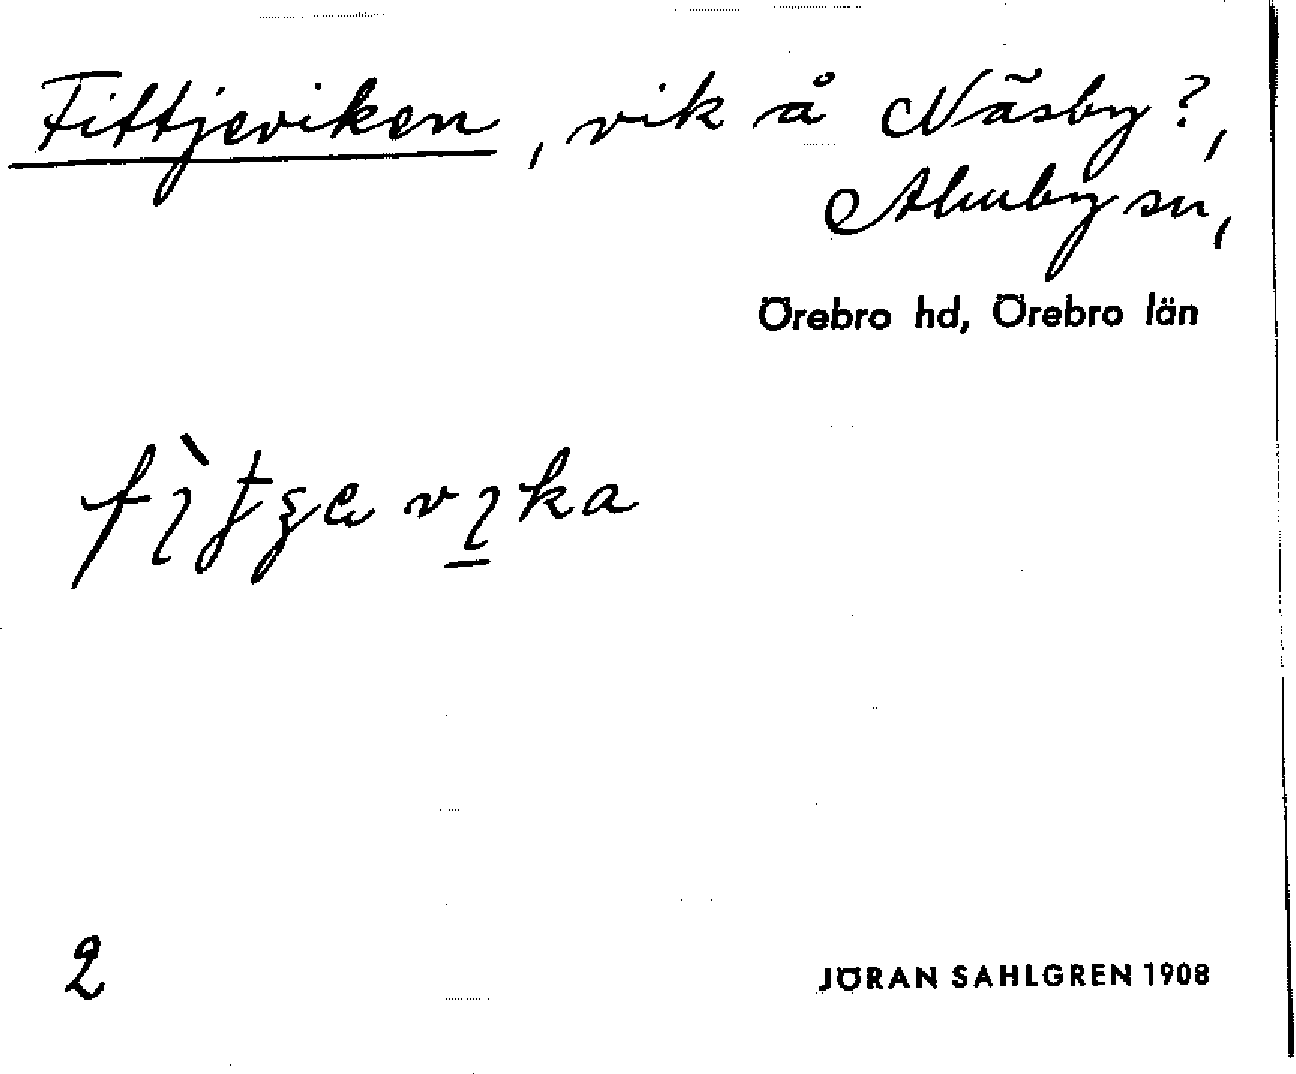 Fittjeviken, vik å Näsby?,
Almby sn,
Örebro hd, Örebro län
2
JÖRAN SAHLGREN 1908